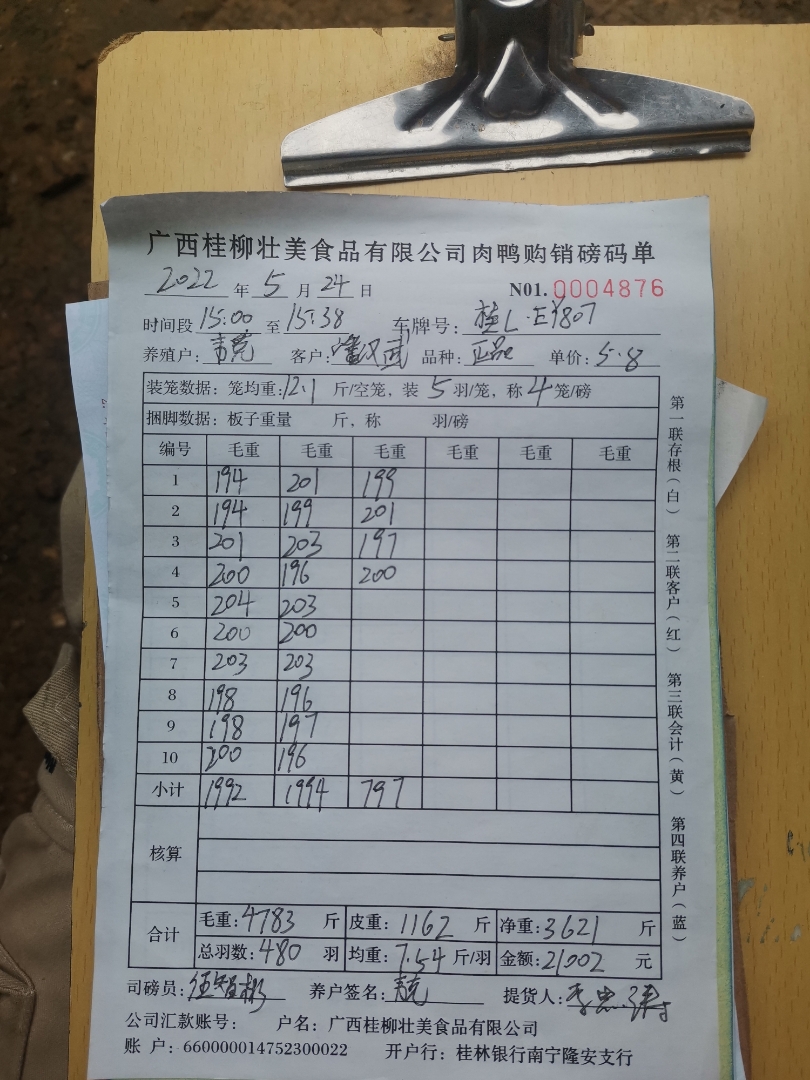 广西桂柳壮美食品有限公司肉鸭购销磅码单
2022 年 5 月 24 日 N01. 0004876
时间段 15:00 至 15:38 车牌号: 桂L·EY807
养殖户: 客户: 品种: 正品 单价: 5.8
装笼数据: 笼均重: 12.1 斤/空笼, 装 5 羽/笼, 称 4 笼/磅
捆脚数据: 板子重量 斤, 称 羽/磅
编号 毛重 毛重 毛重 毛重 毛重 毛重
1 194 201 199
2 194 199 201
3 201 203 197
4 200 196 200
5 204 203
6 200 200
7 203 203
8 198 196
9 198 197
10 200 196
小计 1992 1994 797
核算
合计 毛重: 4783 斤 皮重: 1162 斤 净重: 3621 斤
总羽数: 480 羽 均重: 7.54 斤/羽 金额: 21002 元
司磅员: 养户签名: 提货人:
公司汇款账号: 户名: 广西桂柳壮美食品有限公司
账 户: 660000014752300022 开户行: 桂林银行南宁隆安支行
第一联存根(白) 第二联客户(红) 第三联会计(黄) 第四联养户(蓝)